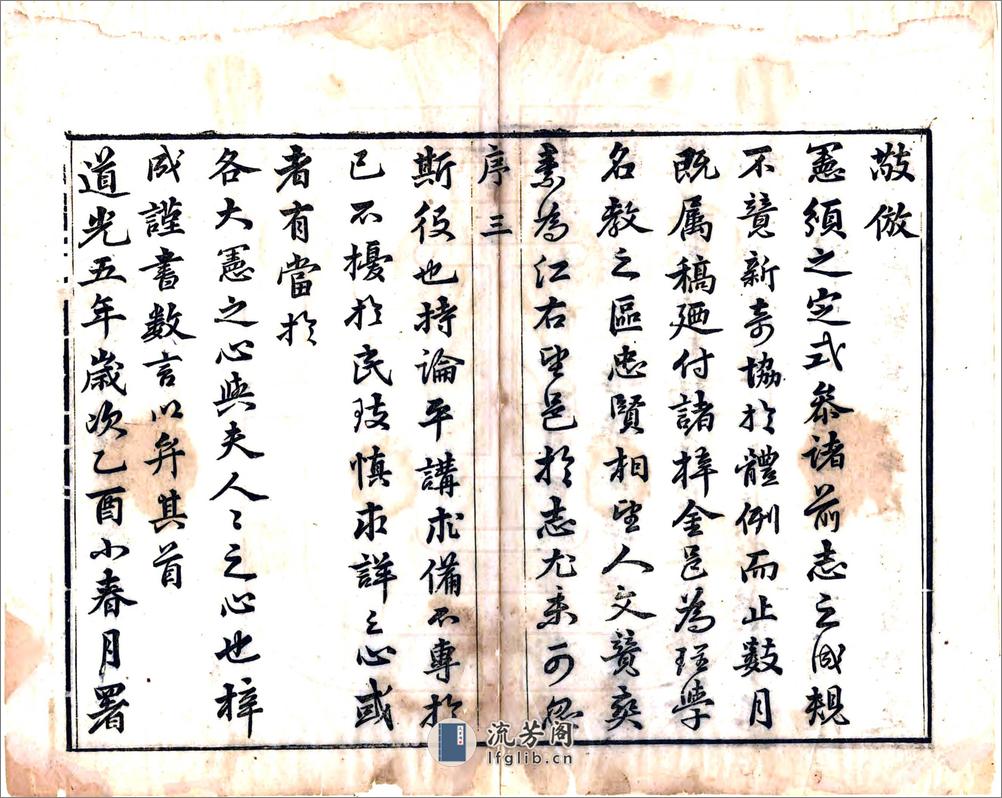 敬倣
憲頒之定式叅諸前志之成規
不意新奇協扵體例而止數月
既属稿廼付諸梓金邑為理學
名教之區忠賢相望人文贊爽
素為江右望邑扵志尤未可忽
序 三
斯役也持論平講求備不專扵
已不擾扵民政慎求詳之心或
者有當扵
各大憲之心與夫人人之心也梓
成謹書数言以弁其首
道光五年歲次乙酉小春月署
流芳阁
lfglib.cn